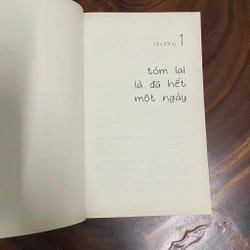 chương 1
tóm lại
là đã hết
một ngày